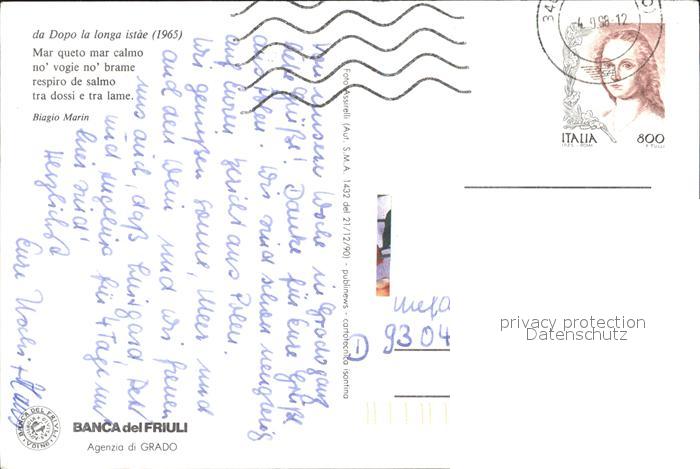 da Dopo la longa istàe (1965)
Mar queto mar calmo
no' vogie no' brame
respiro de salmo
tra dossi e tra lame.
Biagio Marin
Von unserer Woche in Grado ganz
liebe Grüße! Danke für Eure Grüße
aus Polen. Wir sind schon neugierig
auf Euren Bericht aus Polen.
Wir genießen Sonne, Meer und
auch den Wein und wir freuen
uns auch, daß Luitgard,
und für 4 Tage mit
hier sind!
Herzlichst
Eure Uschi +
BANCA del FRIULI
Agenzia di GRADO
BANCA DEL FRIULI
Foto Assirelli (Aut. S.M.A. 1432 del 21/12/90) - publinews - cartotecnica isontina
4.9.98-12
ITALIA 800
D 9304
privacy protection
Datenschutz